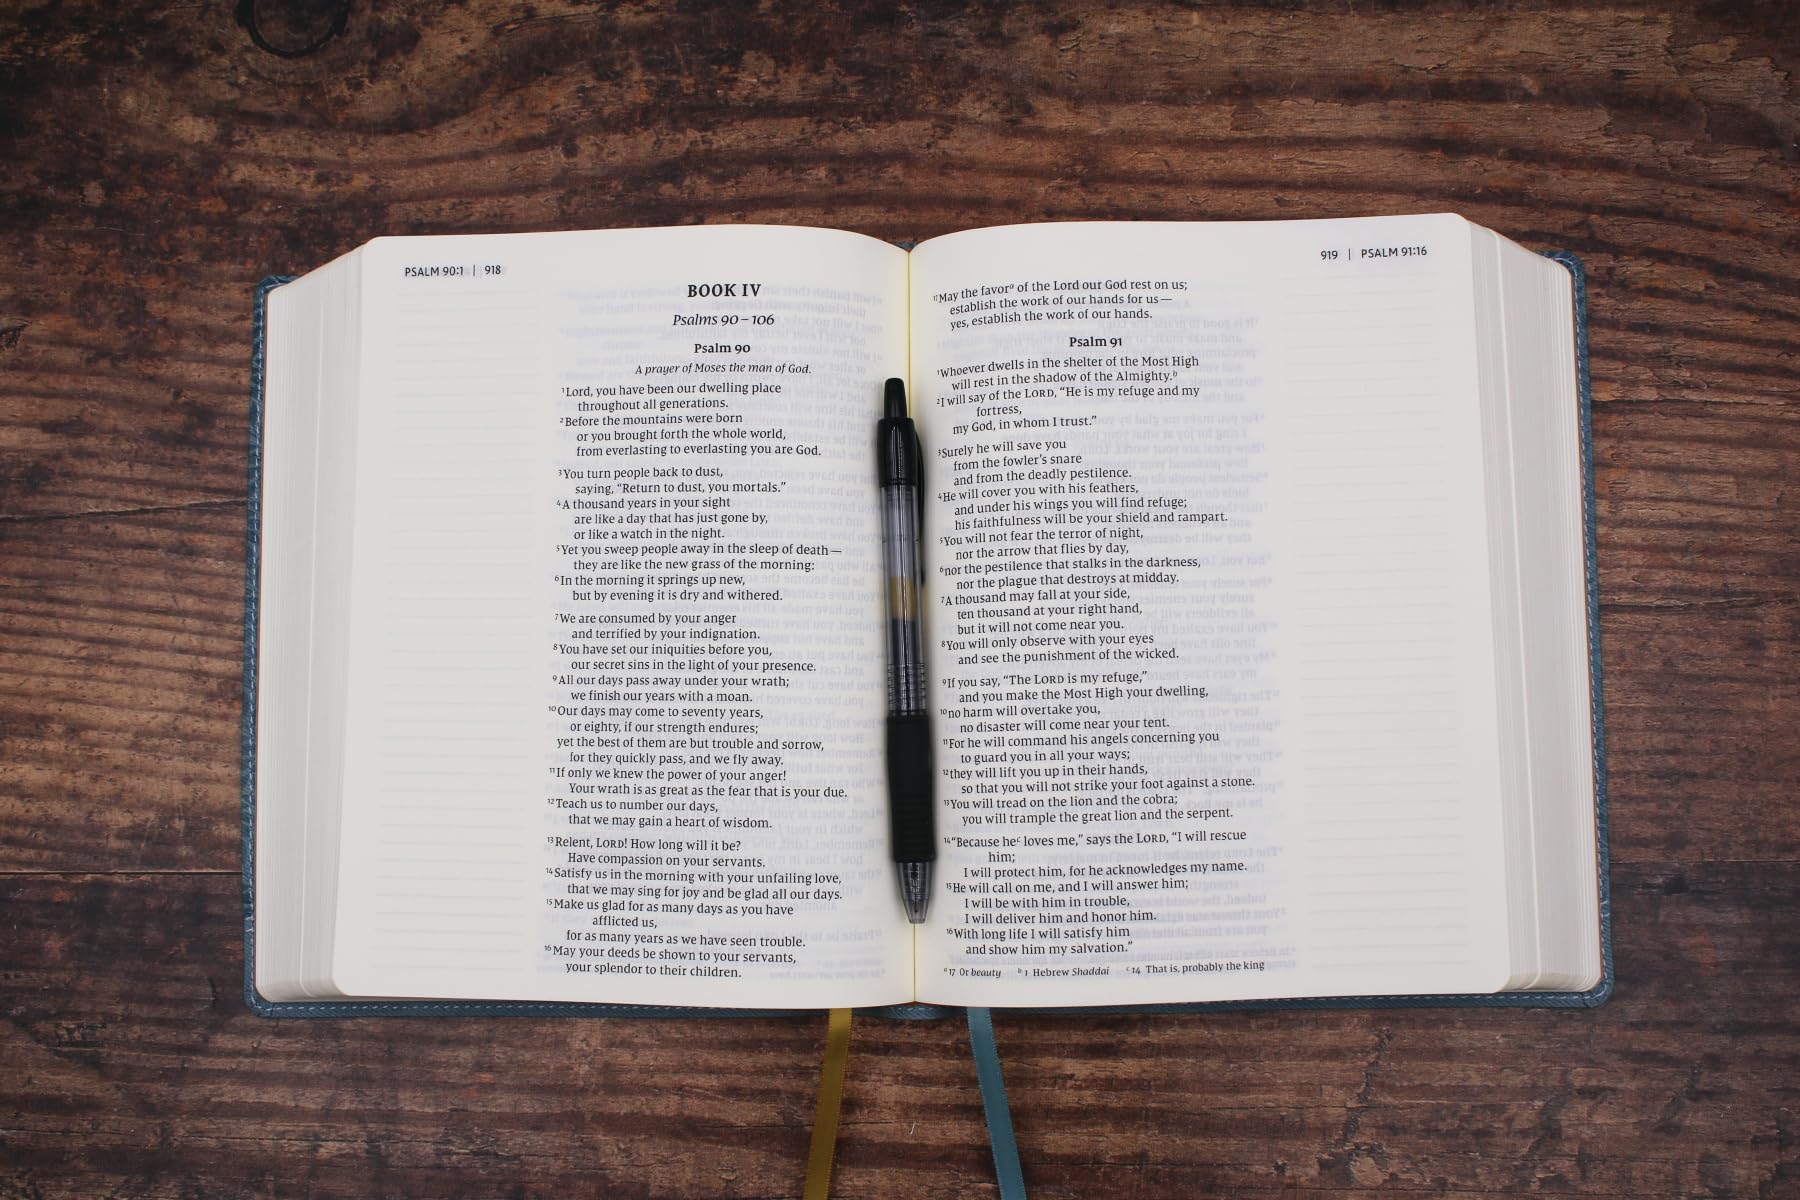 PSALM 90:1 | 918
BOOK IV
Psalms 90 – 106
Psalm 90
A prayer of Moses the man of God.
1Lord, you have been our dwelling place
throughout all generations.
2Before the mountains were born
or you brought forth the whole world,
from everlasting to everlasting you are God.
3You turn people back to dust,
saying, “Return to dust, you mortals.”
4A thousand years in your sight
are like a day that has just gone by,
or like a watch in the night.
5Yet you sweep people away in the sleep of death—
they are like the new grass of the morning:
6In the morning it springs up new,
but by evening it is dry and withered.
7We are consumed by your anger
and terrified by your indignation.
8You have set our iniquities before you,
our secret sins in the light of your presence.
9All our days pass away under your wrath;
we finish our years with a moan.
10Our days may come to seventy years,
or eighty, if our strength endures;
yet the best of them are but trouble and sorrow,
for they quickly pass, and we fly away.
11If only we knew the power of your anger!
Your wrath is as great as the fear that is your due.
12Teach us to number our days,
that we may gain a heart of wisdom.
13Relent, LORD! How long will it be?
Have compassion on your servants.
14Satisfy us in the morning with your unfailing love,
that we may sing for joy and be glad all our days.
15Make us glad for as many days as you have
afflicted us,
for as many years as we have seen trouble.
16May your deeds be shown to your servants,
your splendor to their children.
919 | PSALM 91:16
17May the favor a of the Lord our God rest on us;
establish the work of our hands for us—
yes, establish the work of our hands.
Psalm 91
1Whoever dwells in the shelter of the Most High
will rest in the shadow of the Almighty.b
2I will say of the LORD, “He is my refuge and my
fortress,
my God, in whom I trust.”
3Surely he will save you
from the fowler’s snare
and from the deadly pestilence.
4He will cover you with his feathers,
and under his wings you will find refuge;
his faithfulness will be your shield and rampart.
5You will not fear the terror of night,
nor the arrow that flies by day,
6nor the pestilence that stalks in the darkness,
nor the plague that destroys at midday.
7A thousand may fall at your side,
ten thousand at your right hand,
but it will not come near you.
8You will only observe with your eyes
and see the punishment of the wicked.
9If you say, “The LORD is my refuge,”
and you make the Most High your dwelling,
10no harm will overtake you,
no disaster will come near your tent.
11For he will command his angels concerning you
to guard you in all your ways;
12they will lift you up in their hands,
so that you will not strike your foot against a stone.
13You will tread on the lion and the cobra;
you will trample the great lion and the serpent.
14“Because he c loves me,” says the LORD, “I will rescue
him;
I will protect him, for he acknowledges my name.
15He will call on me, and I will answer him;
I will be with him in trouble,
I will deliver him and honor him.
16With long life I will satisfy him
and show him my salvation.”
a 17 Or beauty b 1 Hebrew Shaddai c 14 That is, probably the king